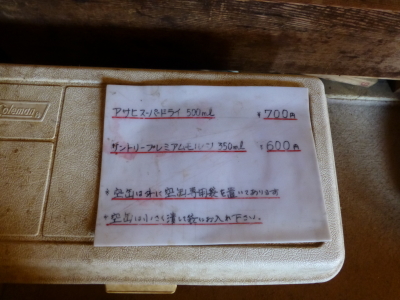 Coleman
アサヒスーパードライ 500ml ¥700円
サントリープレミアムモルツ 350ml ¥600円
*空缶は外に空缶専用袋を置いております
*空缶は小さく潰してお入れ下さい。